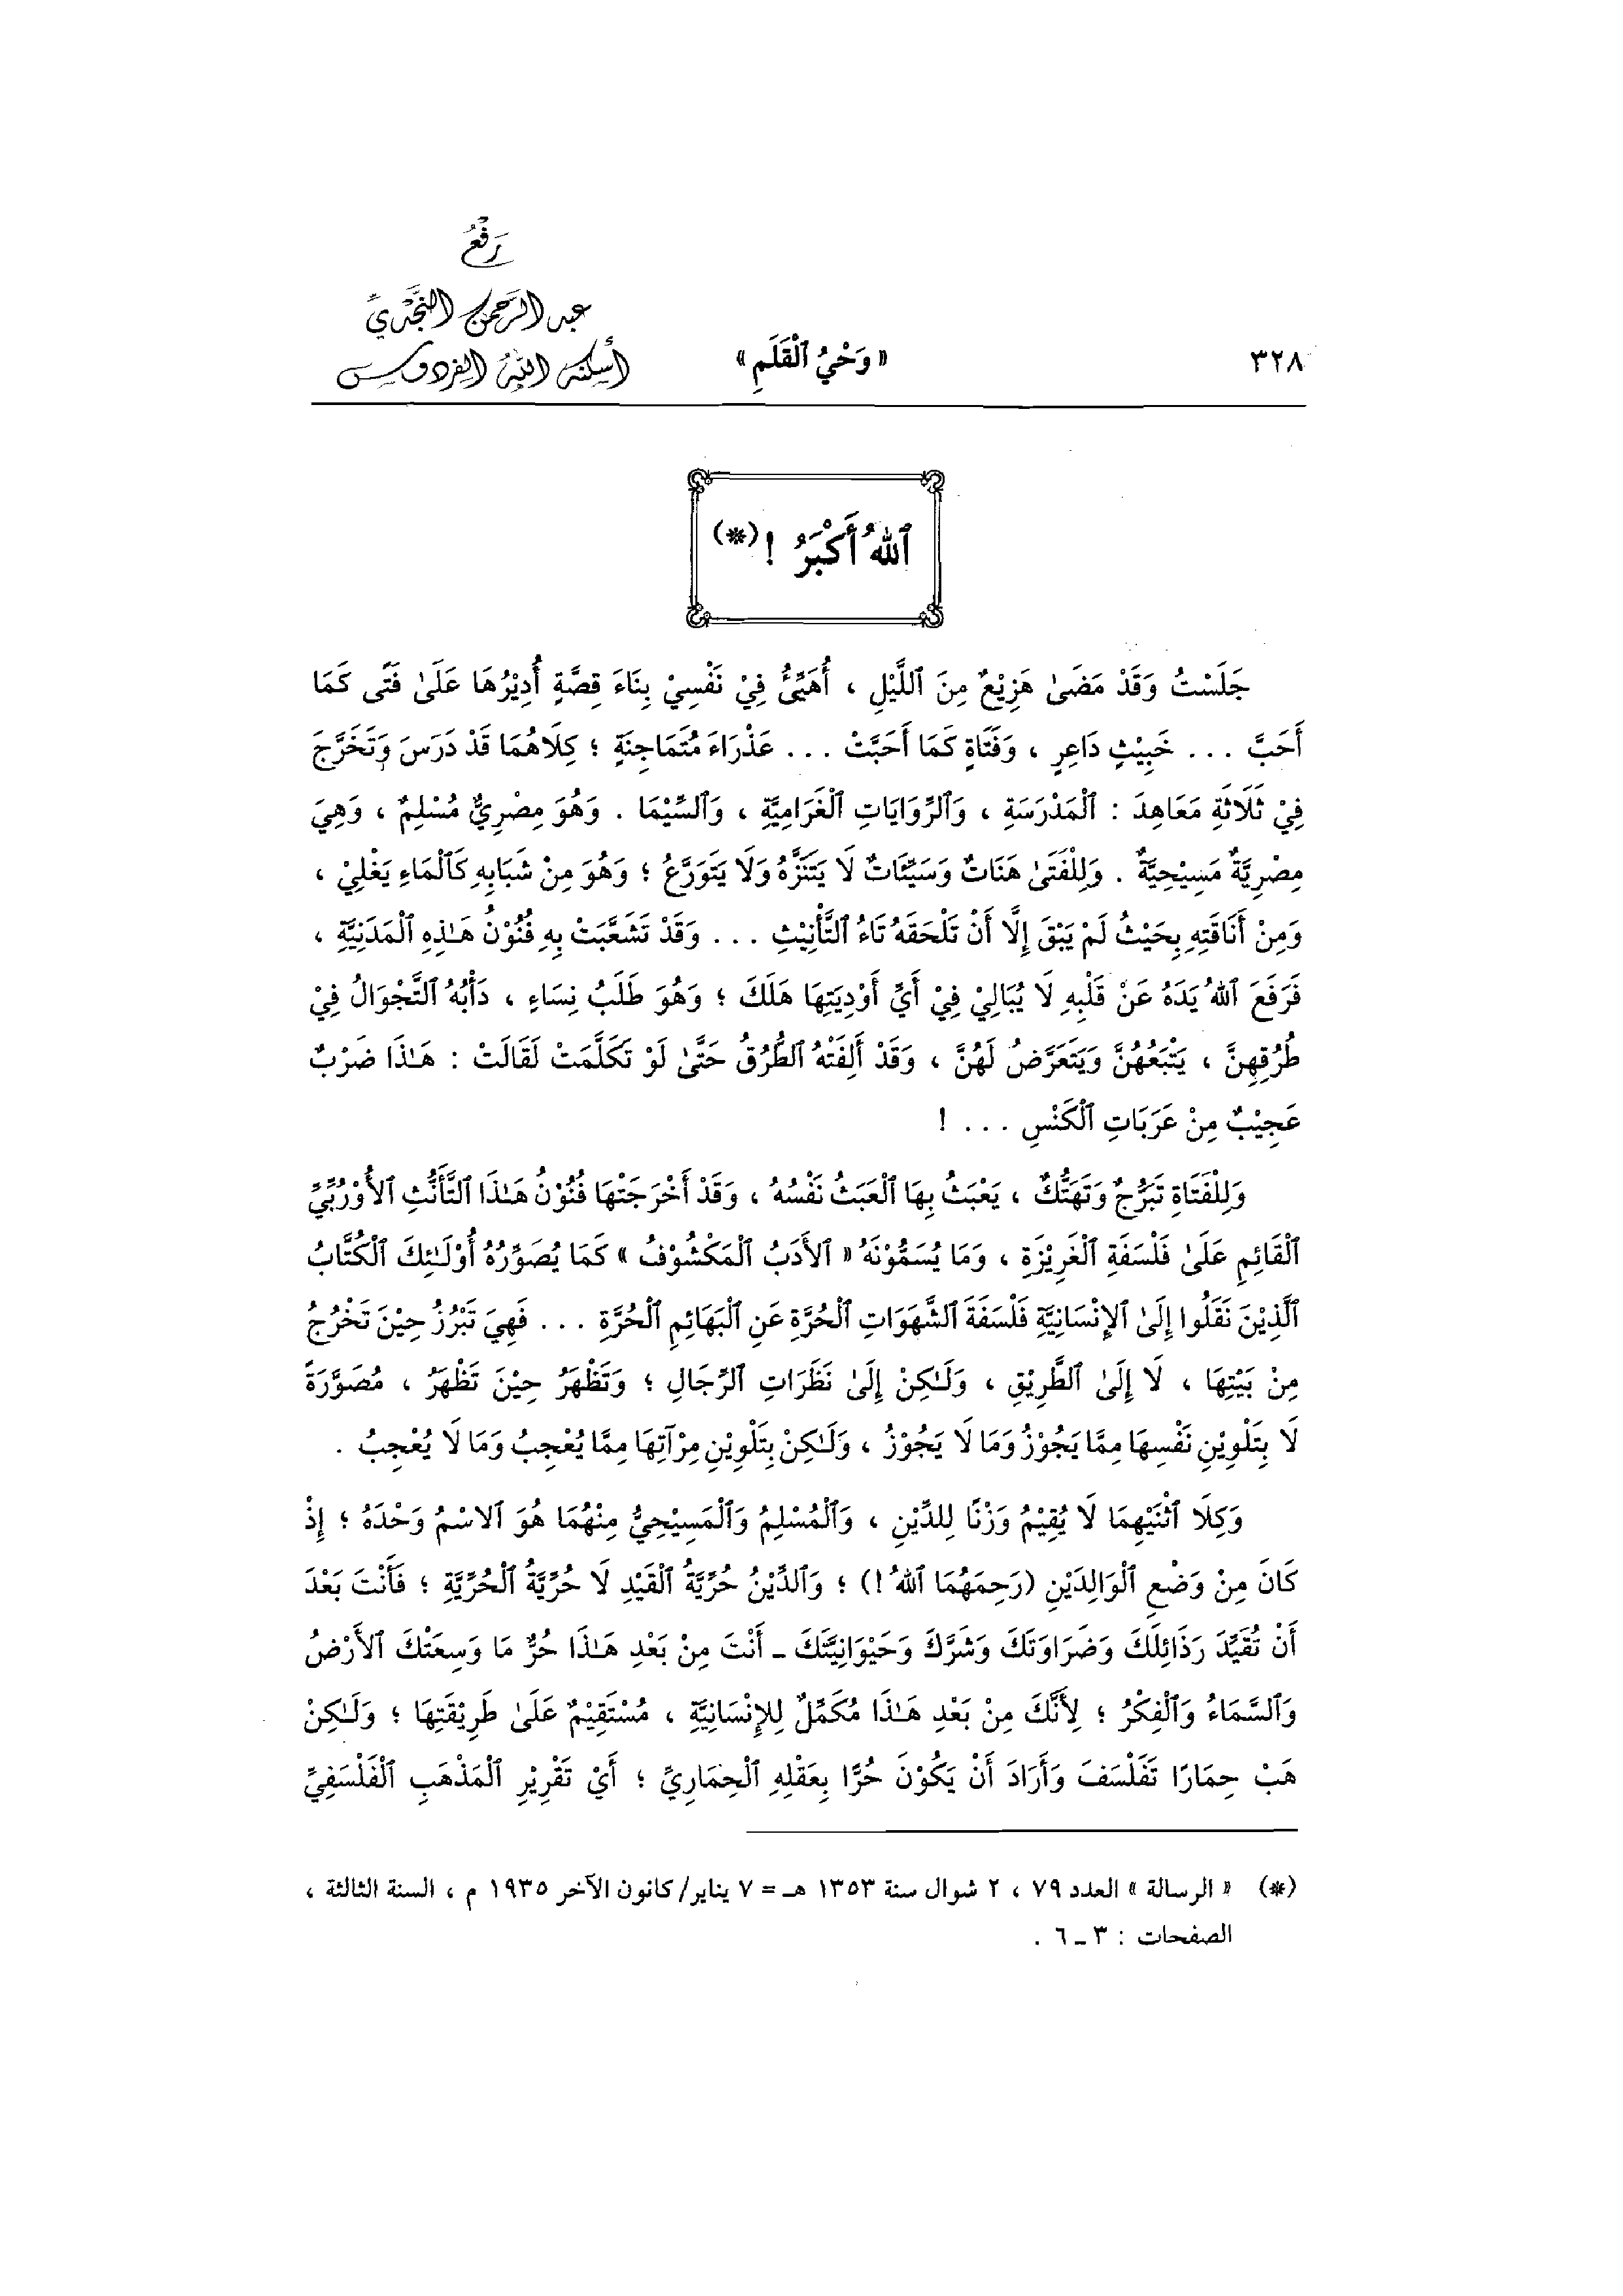 رَفْعُ
عبد الرَّحمن النَّجْديِّ
أسكنه الله الفردوس
٣٢٨
« وَحْيُ ٱلْقَلَمِ »
ٱللهُ أَكْبَرُ ! (*)
جَلَسْتُ وَقَدْ مَضَىٰ هَزِيْعٌ مِنَ ٱللَّيْلِ ، أُهَيِّئُ فِيْ نَفْسِيْ بِنَاءَ قِصَّةٍ أُدِيْرُهَا عَلَىٰ فَتًى كَمَا
أَحَبَّ . . . خَبِيْثٍ دَاعِرٍ ، وَفَتَاةٍ كَمَا أَحَبَّتْ . . . عَذْرَاءَ مُتَمَاجِنَةٍ ؛ كِلَاهُمَا قَدْ دَرَسَ وَتَخَرَّجَ
فِيْ ثَلَاثَةِ مَعَاهِدَ : ٱلْمَدْرَسَةِ ، وَٱلرِّوَايَاتِ ٱلْغَرَامِيَّةِ ، وَٱلسِّيْمَا . وَهُوَ مِصْرِيٌّ مُسْلِمٌ ، وَهِيَ
مِصْرِيَّةٌ مَسِيْحِيَّةٌ . وَلِلْفَتَىٰ هَنَاتٌ وَسَيِّئَاتٌ لَا يَتَنَزَّهُ وَلَا يَتَوَرَّعُ ؛ وَهُوَ مِنْ شَبَابِهِ كَٱلْمَاءِ يَغْلِيْ ،
وَمِنْ أَنَاقَتِهِ بِحَيْثُ لَمْ يَبْقَ إِلَّا أَنْ تَلْحَقَهُ تَاءُ ٱلتَّأْنِيْثِ . . . وَقَدْ تَشَعَّبَتْ بِهِ فُنُوْنُ هَـٰذِهِ ٱلْمَدَنِيَّةِ ،
فَرَفَعَ ٱللهُ يَدَهُ عَنْ قَلْبِهِ لَا يُبَالِيْ فِيْ أَيِّ أَوْدِيَتِهَا هَلَكَ ؛ وَهُوَ طَلَبُ نِسَاءٍ ، دَأْبُهُ ٱلتَّجْوَالُ فِيْ
طُرُقِهِنَّ ، يَتْبَعُهُنَّ وَيَتَعَرَّضُ لَهُنَّ ، وَقَدْ أَلِفَتْهُ ٱلطُّرُقُ حَتَّىٰ لَوْ تَكَلَّمَتْ لَقَالَتْ : هَـٰذَا ضَرْبٌ
عَجِيْبٌ مِنْ عَرَبَاتِ ٱلْكَنْسِ . . . !
وَلِلْفَتَاةِ تَبَرُّجٌ وَتَهَتُّكٌ ، يَعْبَثُ بِهَا ٱلْعَبَثُ نَفْسُهُ ، وَقَدْ أَخْرَجَتْهَا فُنُوْنُ هَـٰذَا ٱلتَّأَنُّثِ ٱلأُوْرُبِّيِّ
ٱلْقَائِمِ عَلَىٰ فَلْسَفَةِ ٱلْغَرِيْزَةِ ، وَمَا يُسَمُّوْنَهُ « ٱلأَدَبُ ٱلْمَكْشُوْفُ » كَمَا يُصَوِّرُهُ أُوْلَـٰئِكَ ٱلْكُتَّابُ
ٱلَّذِيْنَ نَقَلُوا إِلَىٰ ٱلإِنْسَانِيَّةِ فَلْسَفَةَ ٱلشَّهَوَاتِ ٱلْحُرَّةِ عَنِ ٱلْبَهَائِمِ ٱلْحُرَّةِ . . . فَهِيَ تَبْرُزُ حِيْنَ تَخْرُجُ
مِنْ بَيْتِهَا ، لَا إِلَىٰ ٱلطَّرِيْقِ ، وَلَـٰكِنْ إِلَىٰ نَظَرَاتِ ٱلرِّجَالِ ؛ وَتَظْهَرُ حِيْنَ تَظْهَرُ ، مُصَوَّرَةً
لَا بِتَلْوِيْنِ نَفْسِهَا مِمَّا يَجُوْزُ وَمَا لَا يَجُوْزُ ، وَلَـٰكِنْ بِتَلْوِيْنِ مِرْآتِهَا مِمَّا يُعْجِبُ وَمَا لَا يُعْجِبُ .
وَكِلَا ٱثْنَيْهِمَا لَا يُقِيْمُ وَزْنًا لِلدِّيْنِ ، وَٱلْمُسْلِمُ وَٱلْمَسِيْحِيُّ مِنْهُمَا هُوَ ٱلاسْمُ وَحْدَهُ ؛ إِذْ
كَانَ مِنْ وَضْعِ ٱلْوَالِدَيْنِ (رَحِمَهُمَا ٱللهُ !) ؛ وَٱلدِّيْنُ حُرِّيَّةُ ٱلْقَيْدِ لَا حُرِّيَّةُ ٱلْحُرِّيَّةِ ؛ فَأَنْتَ بَعْدَ
أَنْ تُقَيِّدَ رَذَائِلَكَ وَضَرَاوَتَكَ وَشَرَّكَ وَحَيْوَانِيَّتَكَ ـ أَنْتَ مِنْ بَعْدِ هَـٰذَا حُرٌّ مَا وَسِعَتْكَ ٱلأَرْضُ
وَٱلسَّمَاءُ وَٱلْفِكْرُ ؛ لِأَنَّكَ مِنْ بَعْدِ هَـٰذَا مُكَمِّلٌ لِلإِنْسَانِيَّةِ ، مُسْتَقِيْمٌ عَلَىٰ طَرِيْقَتِهَا ؛ وَلَـٰكِنْ
هَبْ حِمَارًا تَفَلْسَفَ وَأَرَادَ أَنْ يَكُوْنَ حُرًّا بِعَقْلِهِ ٱلْحِمَارِيِّ ؛ أَيْ تَقْرِيْرِ ٱلْمَذْهَبِ ٱلْفَلْسَفِيِّ
(*) « الرسالة » العدد ٧٩ ، ٢ شوال سنة ١٣٥٣ هـ = ٧ يناير/ كانون الآخر ١٩٣٥ م ، السنة الثالثة ،
الصفحات : ٣ ـ ٦ .